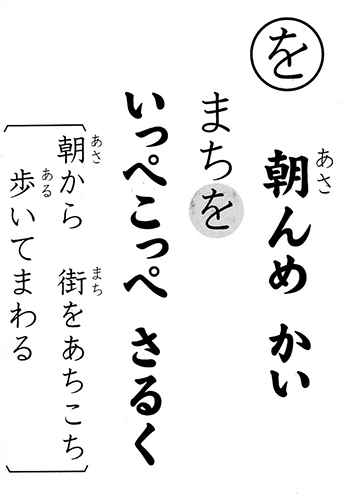 を
朝んめ かい
あさ
まちを
いっぺこっぺ さるく
朝から 街をあちこち
あさ
まち
歩いてまわる
ある